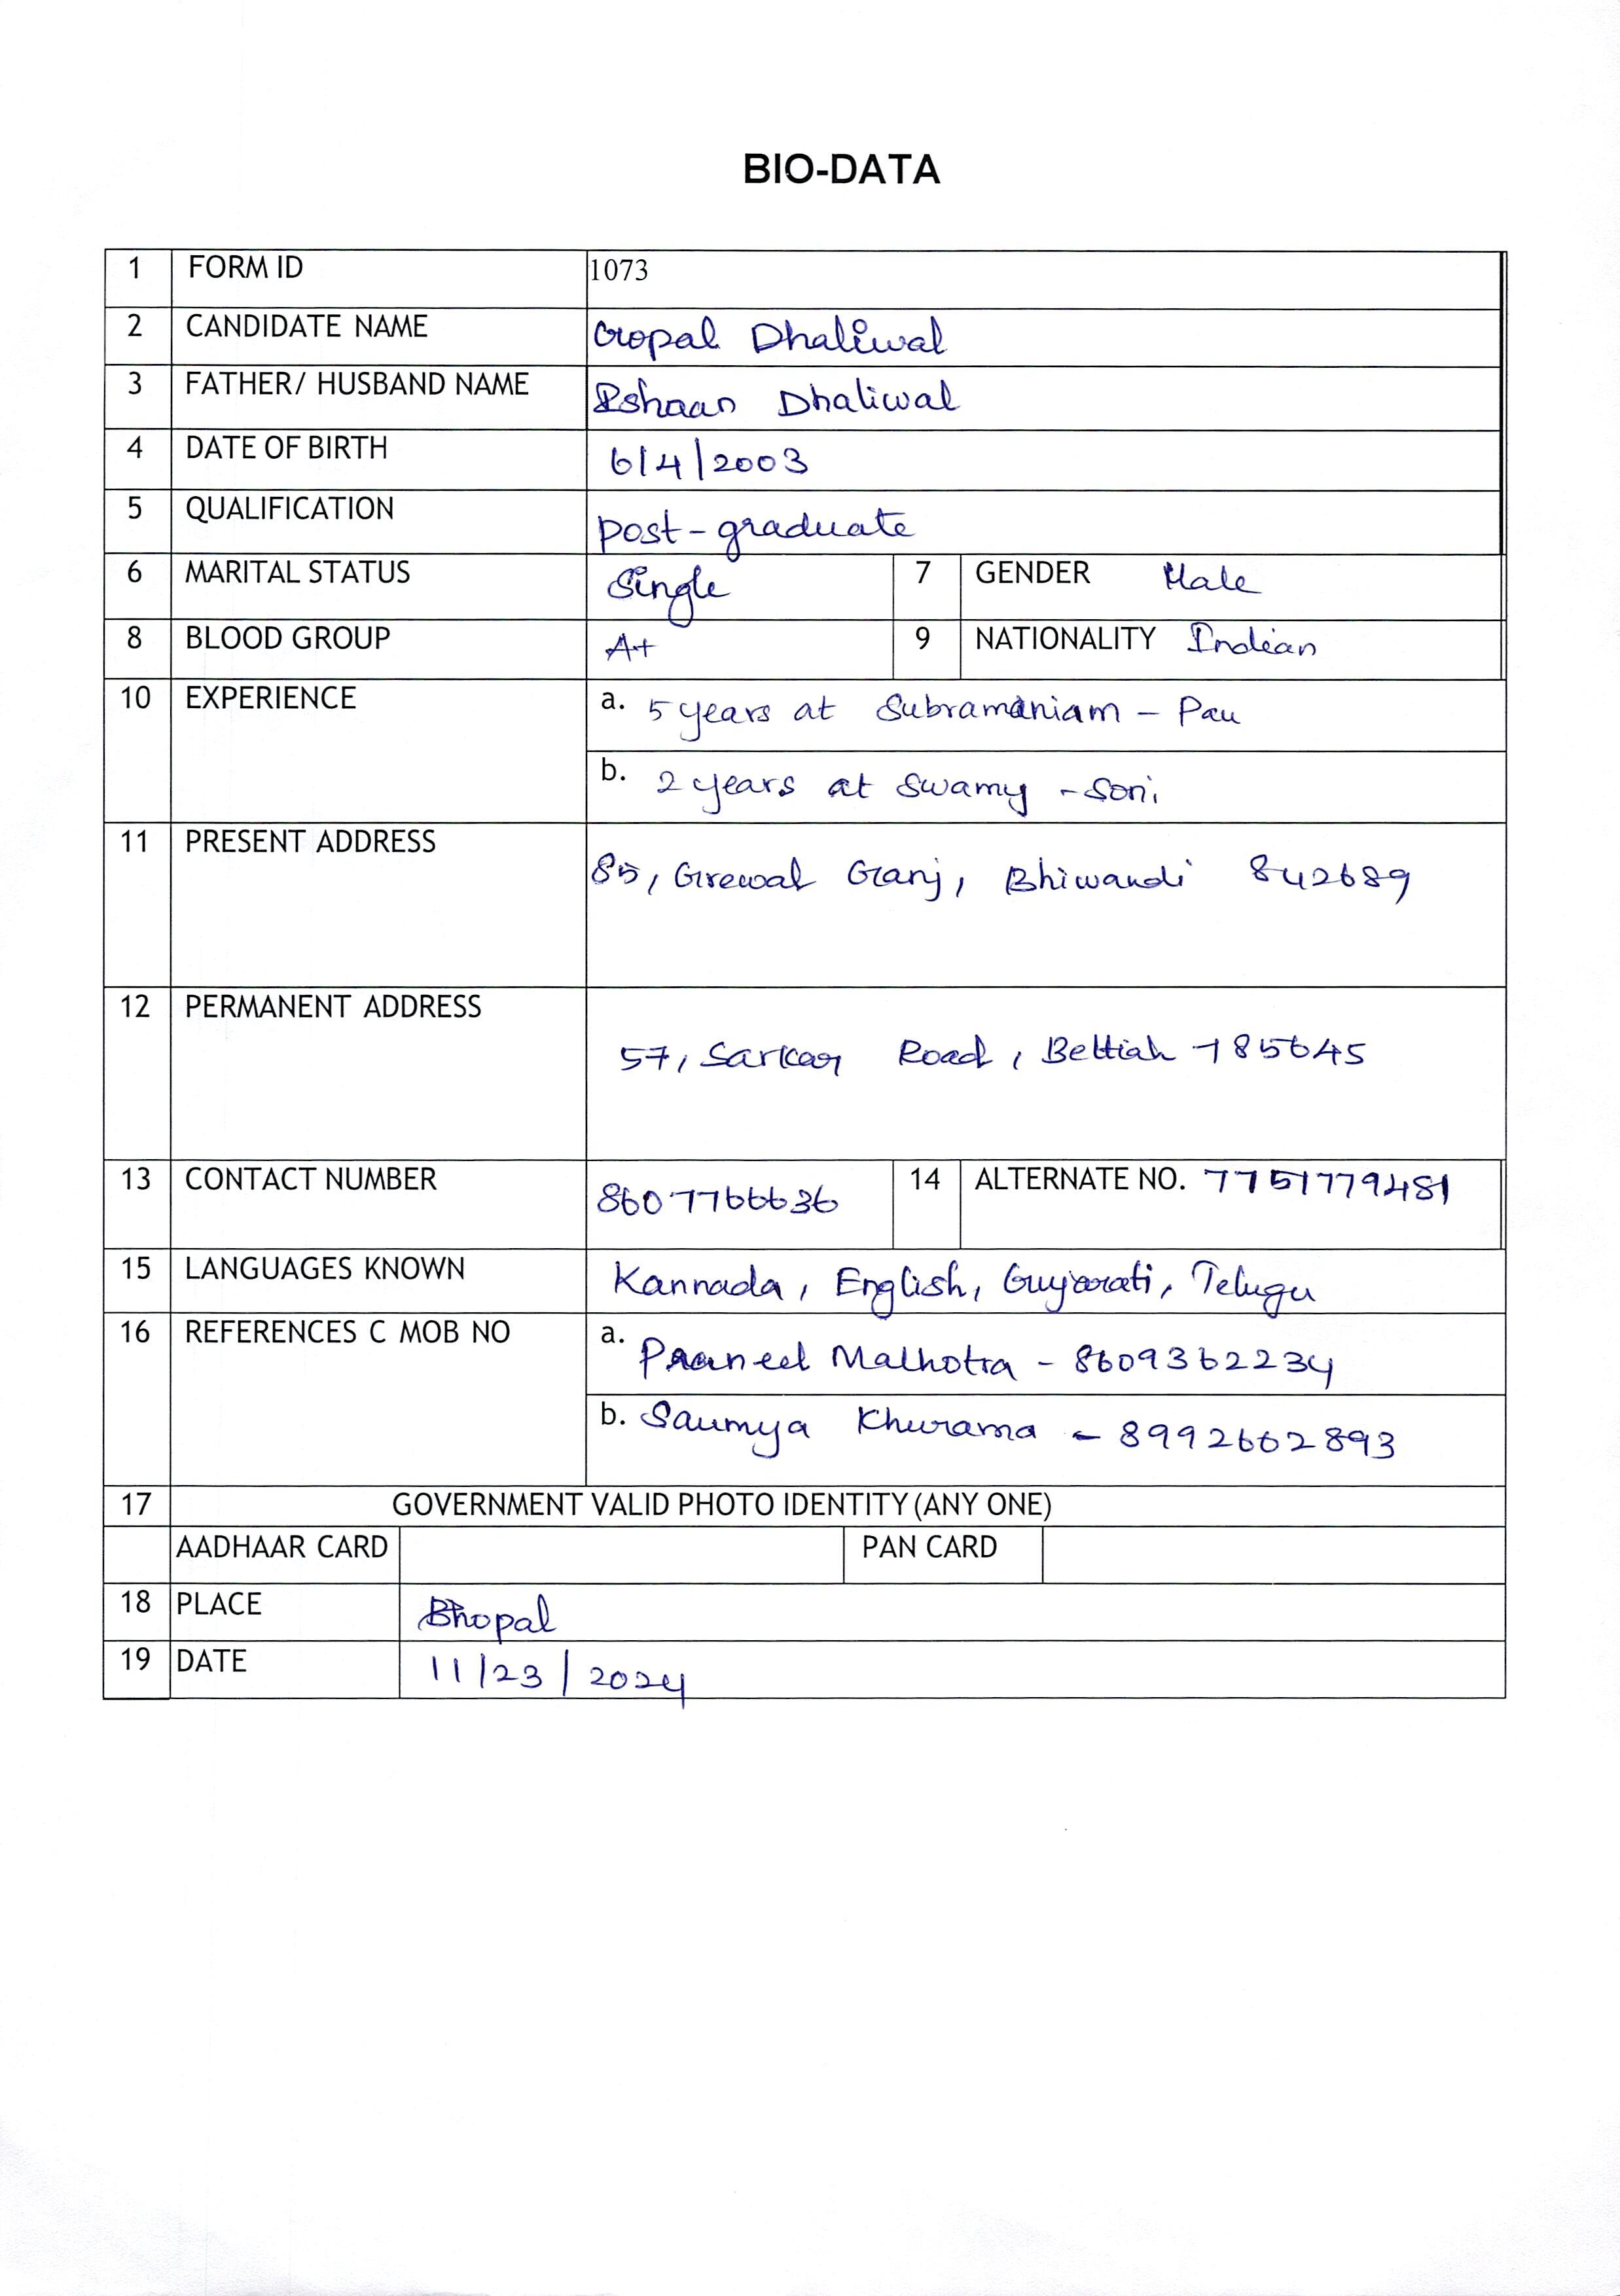 BIO-DATA
1 FORM ID 1073
2 CANDIDATE NAME Gopal Dhaliwal
3 FATHER/ HUSBAND NAME Ishaan Dhaliwal
4 DATE OF BIRTH 6/4/2003
5 QUALIFICATION post-graduate
6 MARITAL STATUS Single 7 GENDER Male
8 BLOOD GROUP A+ 9 NATIONALITY Indian
10 EXPERIENCE a. 5 years at Subramaniam - Pau
b. 2 years at Swamy - Soni
11 PRESENT ADDRESS 85, Grewal Ganj, Bhiwandi 842689
12 PERMANENT ADDRESS 57, Sarkar Road, Bettiah 785645
13 CONTACT NUMBER 8607766636 14 ALTERNATE NO. 7751779481
15 LANGUAGES KNOWN Kannada, English, Gujarati, Telugu
16 REFERENCES C MOB NO a. Praneel Malhotra - 8609362234
b. Saumya Khurana - 8992662893
17 GOVERNMENT VALID PHOTO IDENTITY (ANY ONE)
AADHAAR CARD PAN CARD
18 PLACE Bhopal
19 DATE 11/23/2024